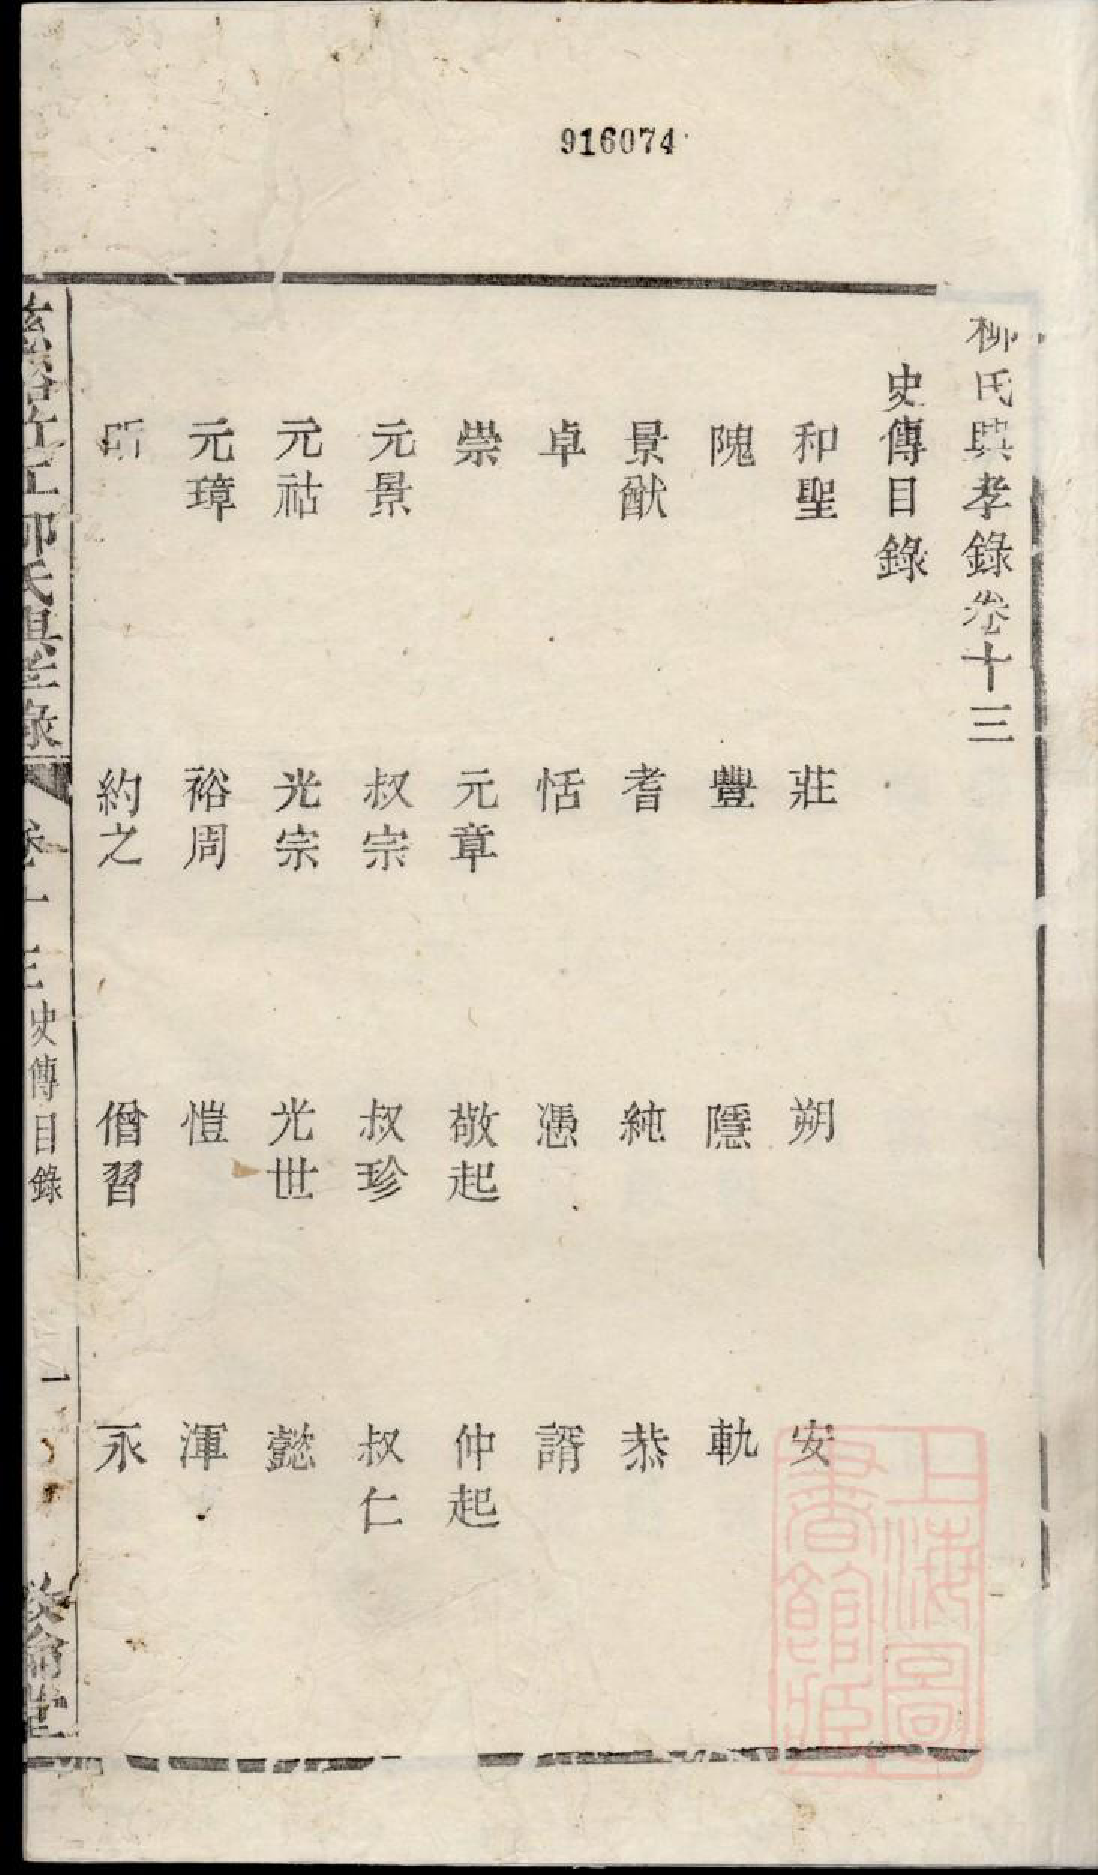 916074
柳氏興孝錄卷十三
史傳目錄
和聖 莊 朔 安
隗 豐 隱 軌
景猷 耆 純 恭
卓 恬 憑 諝
崇 元章 敬起 仲起
元景 叔宗 叔珍 叔仁
元祜 光宗 光世 懿
元璋 裕周 愷 渾
約之 僧習 永
慈谿 氏興孝錄 卷十三 史傳目錄 一 敘倫堂
上海圖書館藏